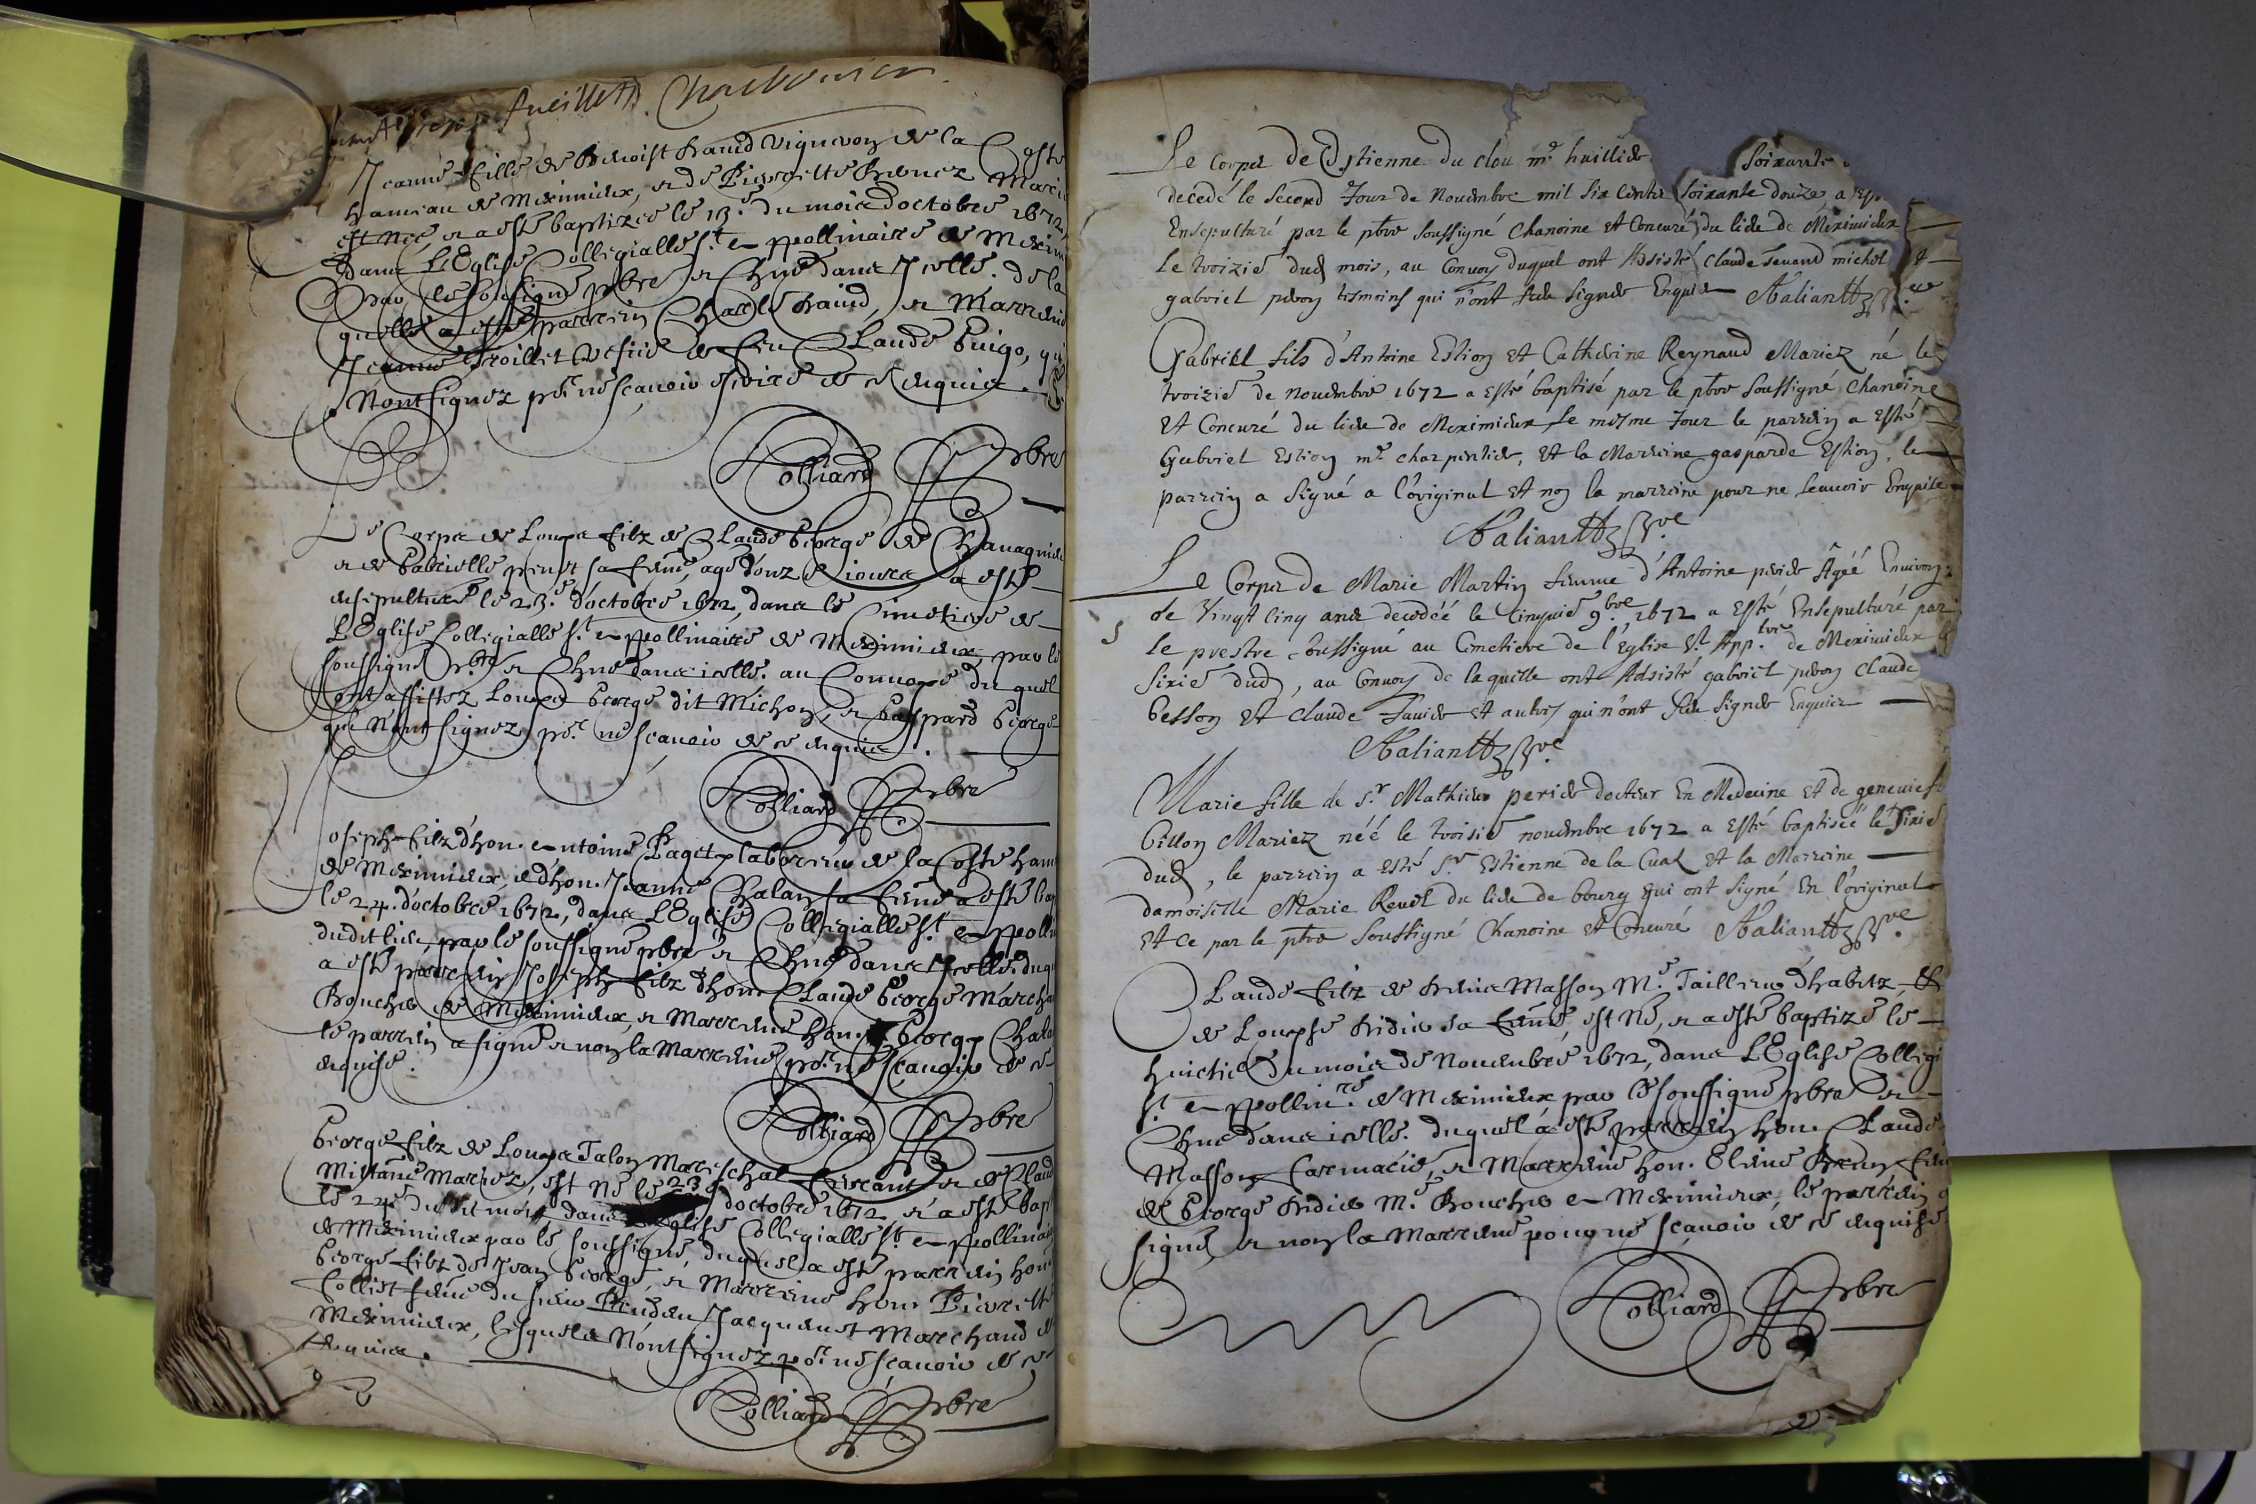 fueillett Charbonnier
Jeanne fille de Benoist Haind vigneron de la Coste
hameau de Meximieux, et de Pierrette Mariez
est née et a esté baptizée le 13e du mois doctobre 1672
dans L'Eglise Collegialle St Appollinaire de Meximi
par le soussigné pbre et Chne dans Icelle. de la
quelle a esté parrein Charle Haind, et Marreine
Jeanne Troillet vefue de feu Claude Guigo, qui
N'ont signez por ne sçauoir escrire de ce enquis.
Colliard Pbre
Le Corps de Loup filz de Claude George de Chauagnieu
et de Gabrielle sa feme, agé d'onze jours a esté
ensepulturé le 23e d'octobre 1672, dans le Cimetiere de
L'Eglise Collegialle St Appollinaire de Meximieux par le
soussigné Pbre et Chne dans icelle. au Conuoye du quel
ont assistez Loup George dit Michon, et Gaspard George
qui N'ont signez por ne sçauoir de ce enquis.
Colliard Pbre
Joseph filz d'hon. Antoine Paget laboureur de la Coste ham
de Meximieux, et d'hon. Jeanne Chalan sa feme a esté bap
le 24. d'octobre 1672, dans L'Eglise Collegialle St Appolli
dudit lieu, par le soussigné pbre et Chne dans Icelle. duq
a esté parrein Joseph filz d'hon. Claude George Marcha
Boucher de Meximieux, et Marreine hon. George Chala
le parrein a signé et non la Marreine por ne sçauoir de ce
enquise.
Colliard Pbre
George filz de Loup Talon Mareschal ferrant et de Claud
Mariez, est né le 23 d'octobre 1672 et a esté bap
le 24e dudit mois dans L'Eglise Collegialle St Appollinai
de Meximieux par le soussigné, duquel a esté parrein hon
George filz de Jean George, et Marreine hon. Pierrette
Colliet feme du sieur Jacquemet Marchand de
Meximieux, lesquels N'ont signez por ne sçauoir de ce
enquis.
Colliard Pbre
Le Corps de Estienne du clou me huillier soixante
decedé le second Jour de Nouembre mil six Cents soixante douze, a esté
Ensepulturé par le pbre soussigné Chanoine et Concuré du lieu de Meximieux
le troizie dud mois, au Conuoy duquel ont Assisté Claude Teuand michel et
gabriel peron tesmoins qui n'ont sceu signer Enquis Aaliantt
Gabriel fils d'Antoine Estion et Catherine Reynaud Mariez né le
troizie de Nouembre 1672 a esté baptisé par le pbre soussigné Chanoine
et Concuré du lieu de Meximieux le mesme Jour le parrein a esté
Gabriel Estion me charpentier, et la Marreine gasparde Estion, le
parrein a signé a l'original et non la marreine pour ne sceauoir Enquise
Aaliantt
Le Corps de Marie Martin femme d'Antoine perier Agéé Enuiron
de Vingt cinq ans decedéé le Cinquie 9bre 1672 a esté Ensepulturé par
le prestre soussigné au Cimetiere de l'Eglise St App.tre de Meximieux le
sixie dud, au Conuoy de laquelle ont Adsisté gabriel peron Claude
besson et Claude Fauier et autres qui n'ont sceu signer Enquis
Aaliantt
Marie fille de Sr Mathieu perier docteur En Medecine et de geneuiefue
Billon Mariez néé le troisie nouembre 1672 a esté baptiséé le sixie
dud, le parrein a esté Sr Estienne de la Cua et la Marreine
damoiselle Marie Reuel du lieu de bourg qui ont signé En l'original
et ce par le pbre soussigné Chanoine et Concuré Aaliantt
Claude filz de Masson Me Tailleur d'habitz et
de Loupse Bidier sa feme, est né, et a esté baptizé le
huictie du mois de Nouembre 1672, dans L'Eglise Collegi
St Appollinre de Meximieux par le soussigné pbre et
Chne dans icelle. duquel a esté parrein hon. Claude
Masson et Marreine hon. Eleine feme
de George Bidier Me Boucher A Meximieux; le parrein a
signé, et non la Marreine pour ne sçauoir de ce enquise.
Colliard Pbre